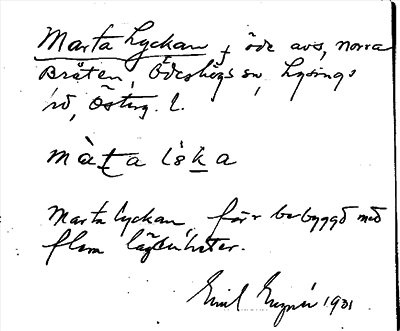 Marta Lyckan, f öde avs, norra
Bråten, Ödeshögs sn, Lysings
hd, Östg. l.
màta lẁka
Marta lyckan, förr bebyggd med
flera lägenheter.
Emil 1931